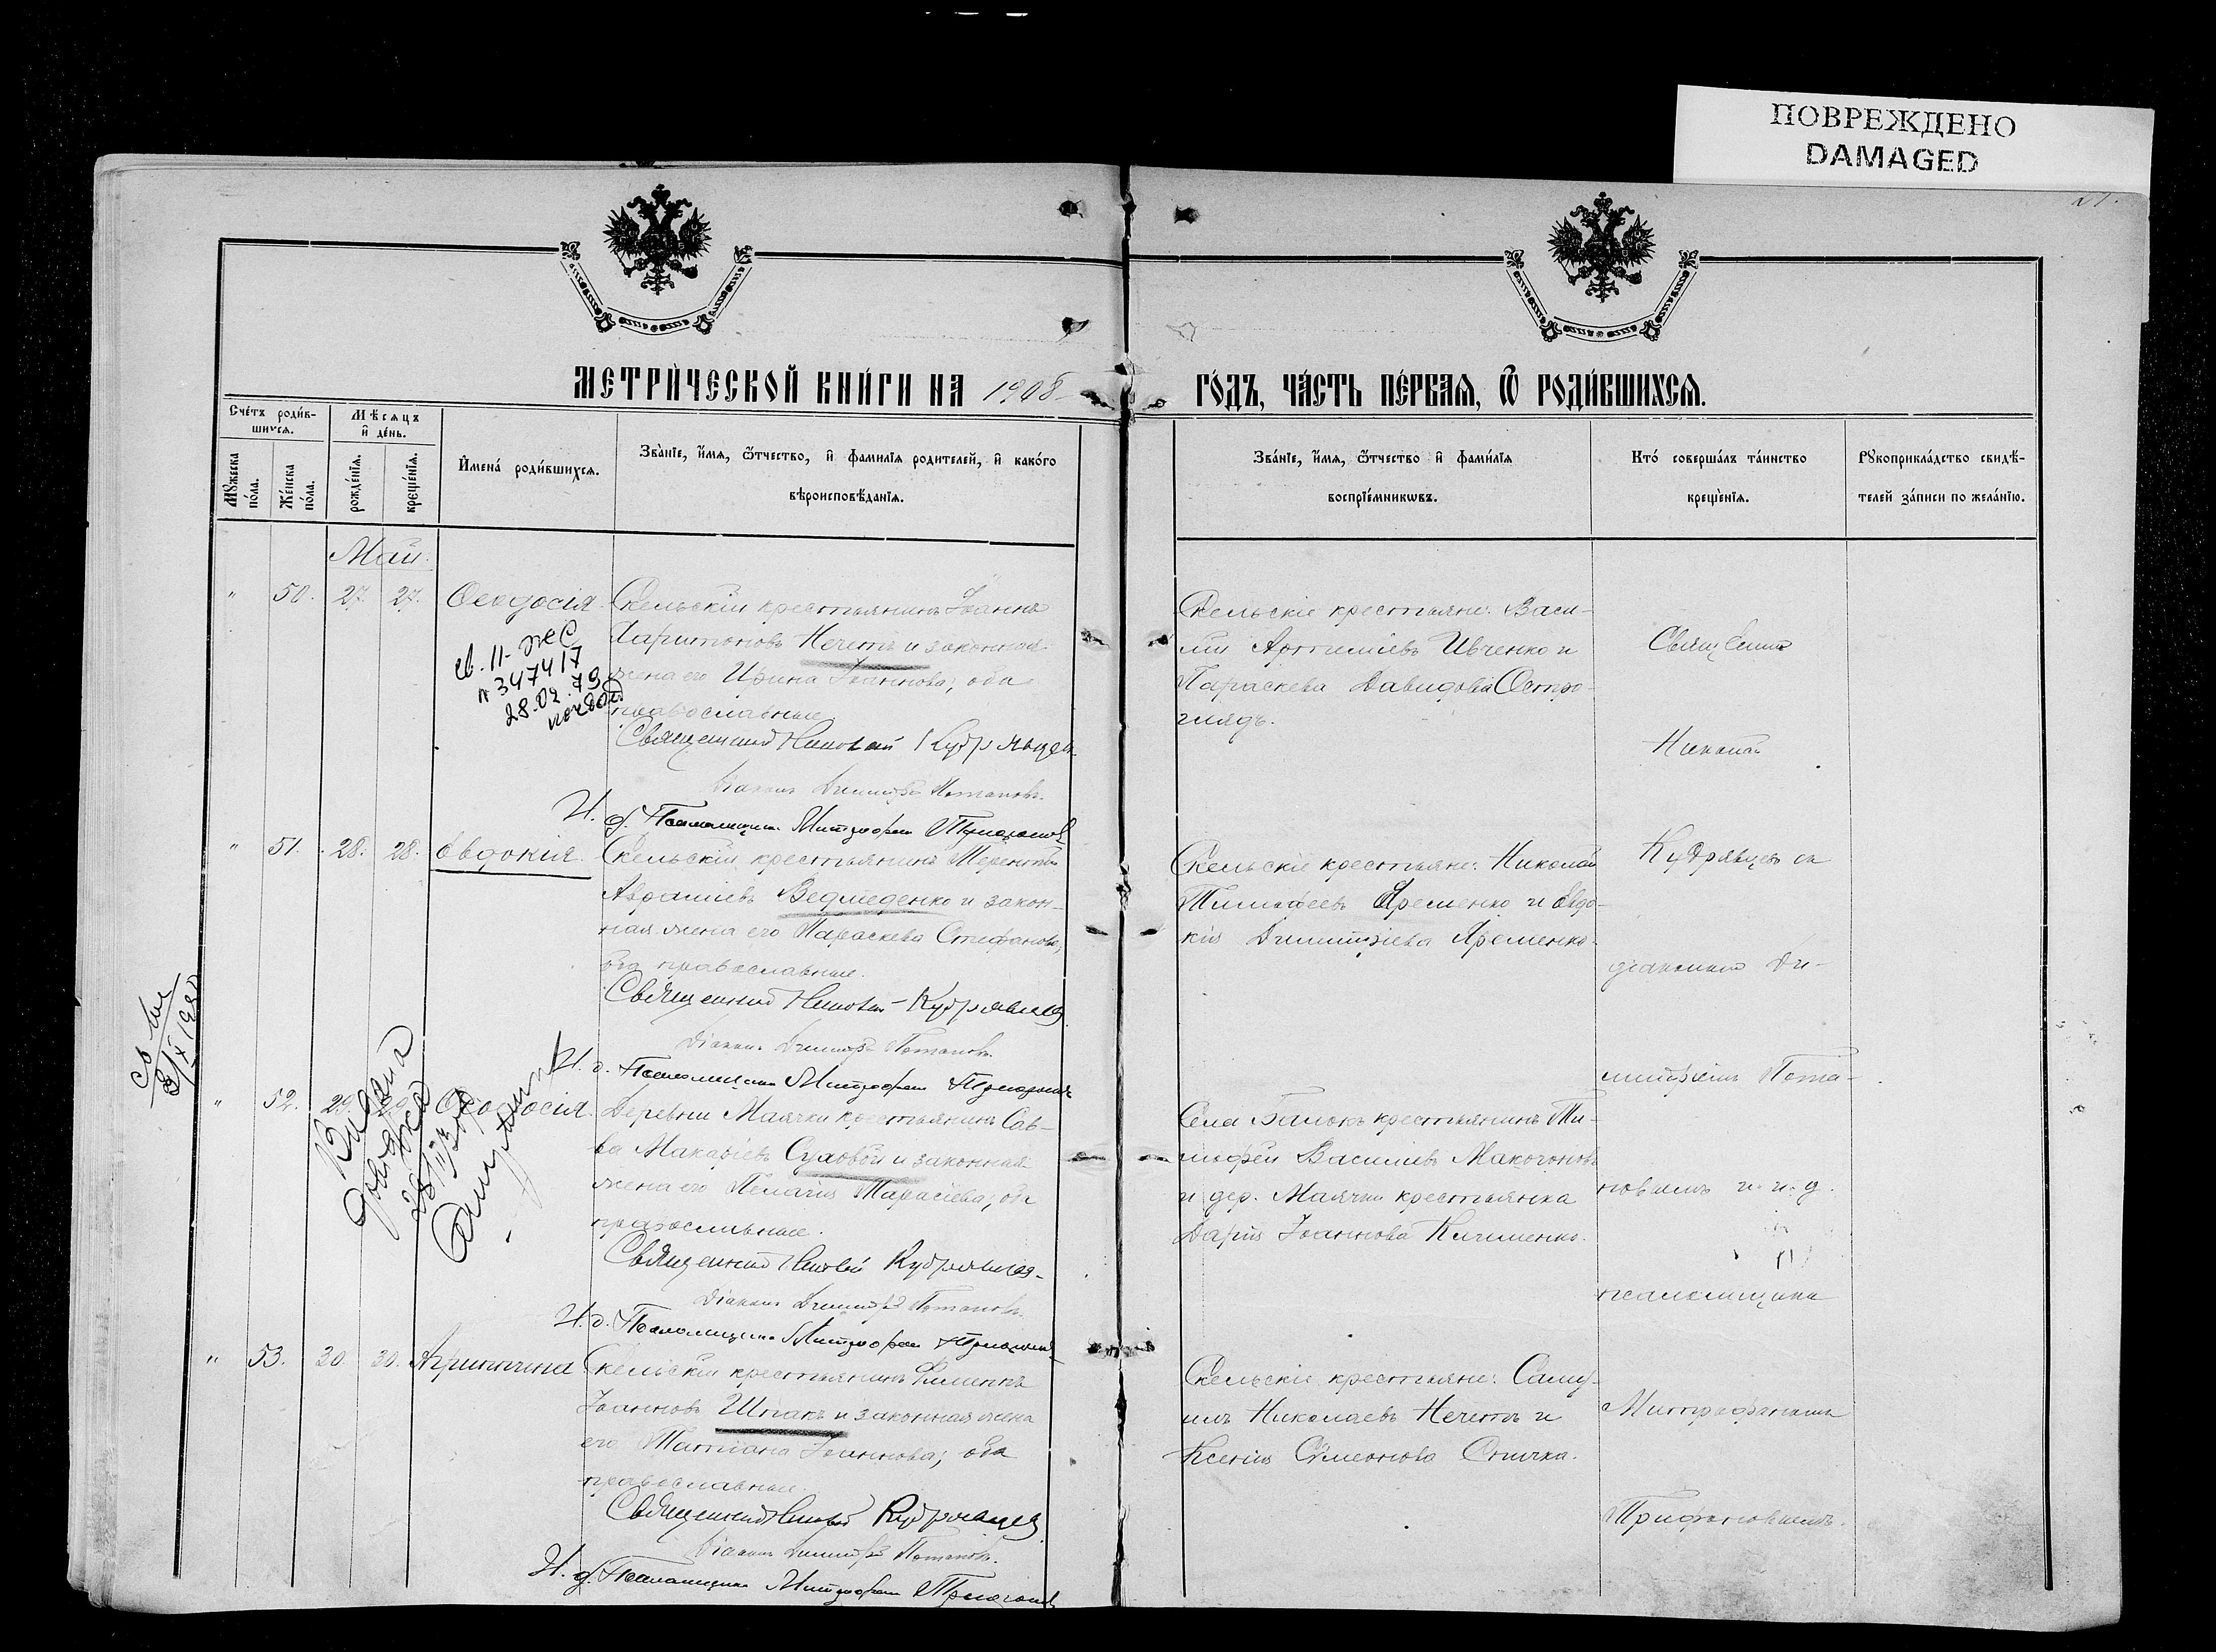 ПОВРЕЖДЕНО
DAMAGED
МЕТРИЧЕСКОЙ КНИГИ НА 1908
ГОДЪ, ЧАСТЬ ПЕРВАЯ, Ѿ РОДИВШИХСЯ.
Счетъ родив-
шихся.
Мѣсяцъ
и день.
Мужеска
пола.
Женска
пола.
рожденія.
крещенія.
Имена родившихся.
Званіе, имя, ѿтчество, и фамилія родителей, и какого
вѣроисповѣданія.
Званіе, имя, ѿтчество и фамилія
воспріемниковъ.
Кто совершалъ таинство
крещенія.
Рукоприкладство свидѣ-
телей записи по желанію.
Май.
" 50. 27. 27. Ѳеодосія.
Скельскій крестьянинъ Іоаннъ
Харитоновъ Нечетъ и законная
жена его Ирина Іоаннова, оба
православные.
Священникъ Николай Кудрявцевъ
Діаконъ Димитрій Потаповъ.
И. д. Псаломщика Митрофанъ
св. II-ЖС
№ 347417
28.02.79
Скельскіе крестьяне: Васи-
лій Артеміевъ Ивченко и
Параскева Давидова Остро-
глядъ.
" 51. 28. 28. Евдокія.
Скельскій крестьянинъ Терентій
Авраміевъ Ведмеденко и закон-
ная жена его Параскева Стефанова,
оба православные.
Священникъ Николай Кудрявцевъ
Діаконъ Димитрій Потаповъ.
И. д. Псаломщика Митрофанъ
Скельскіе крестьяне: Николай
Тимофеевъ Яременко и Евдо-
кія Димитріева Яременко.
" 52. 29. Ѳеодосія.
Деревни Маячки крестьянинъ Сав-
ва Макаріевъ Суховой и законная
жена его Пелагія Тарасіева, оба
православные.
Священникъ Николай Кудрявцевъ
Діаконъ Димитрій Потаповъ.
И. д. Псаломщика Митрофанъ
Села Балокъ крестьянинъ Ти-
мофей Василіевъ Макогоновъ
и дер. Маячки крестьянка
Дарія Іоаннова Кичименко.
" 53. 30 30. Агриппина
Скельскій крестьянинъ Филиппъ
Іоанновъ Шпакъ и законная жена
его Татіана Іоаннова, оба
православные.
Священникъ Николай Кудрявцевъ
Діаконъ Димитрій Потаповъ.
И. д. Псаломщика Митрофанъ
Скельскіе крестьяне: Саму-
илъ Николаевъ Нечетъ и
Ксенія Сѵмеонова Спичка.
Священникъ
Николай
Кудрявцевъ съ
діакономъ Ди-
митріемъ Пота-
повымъ и и. д.
псаломщика
Митрофаномъ
Трифоновымъ.